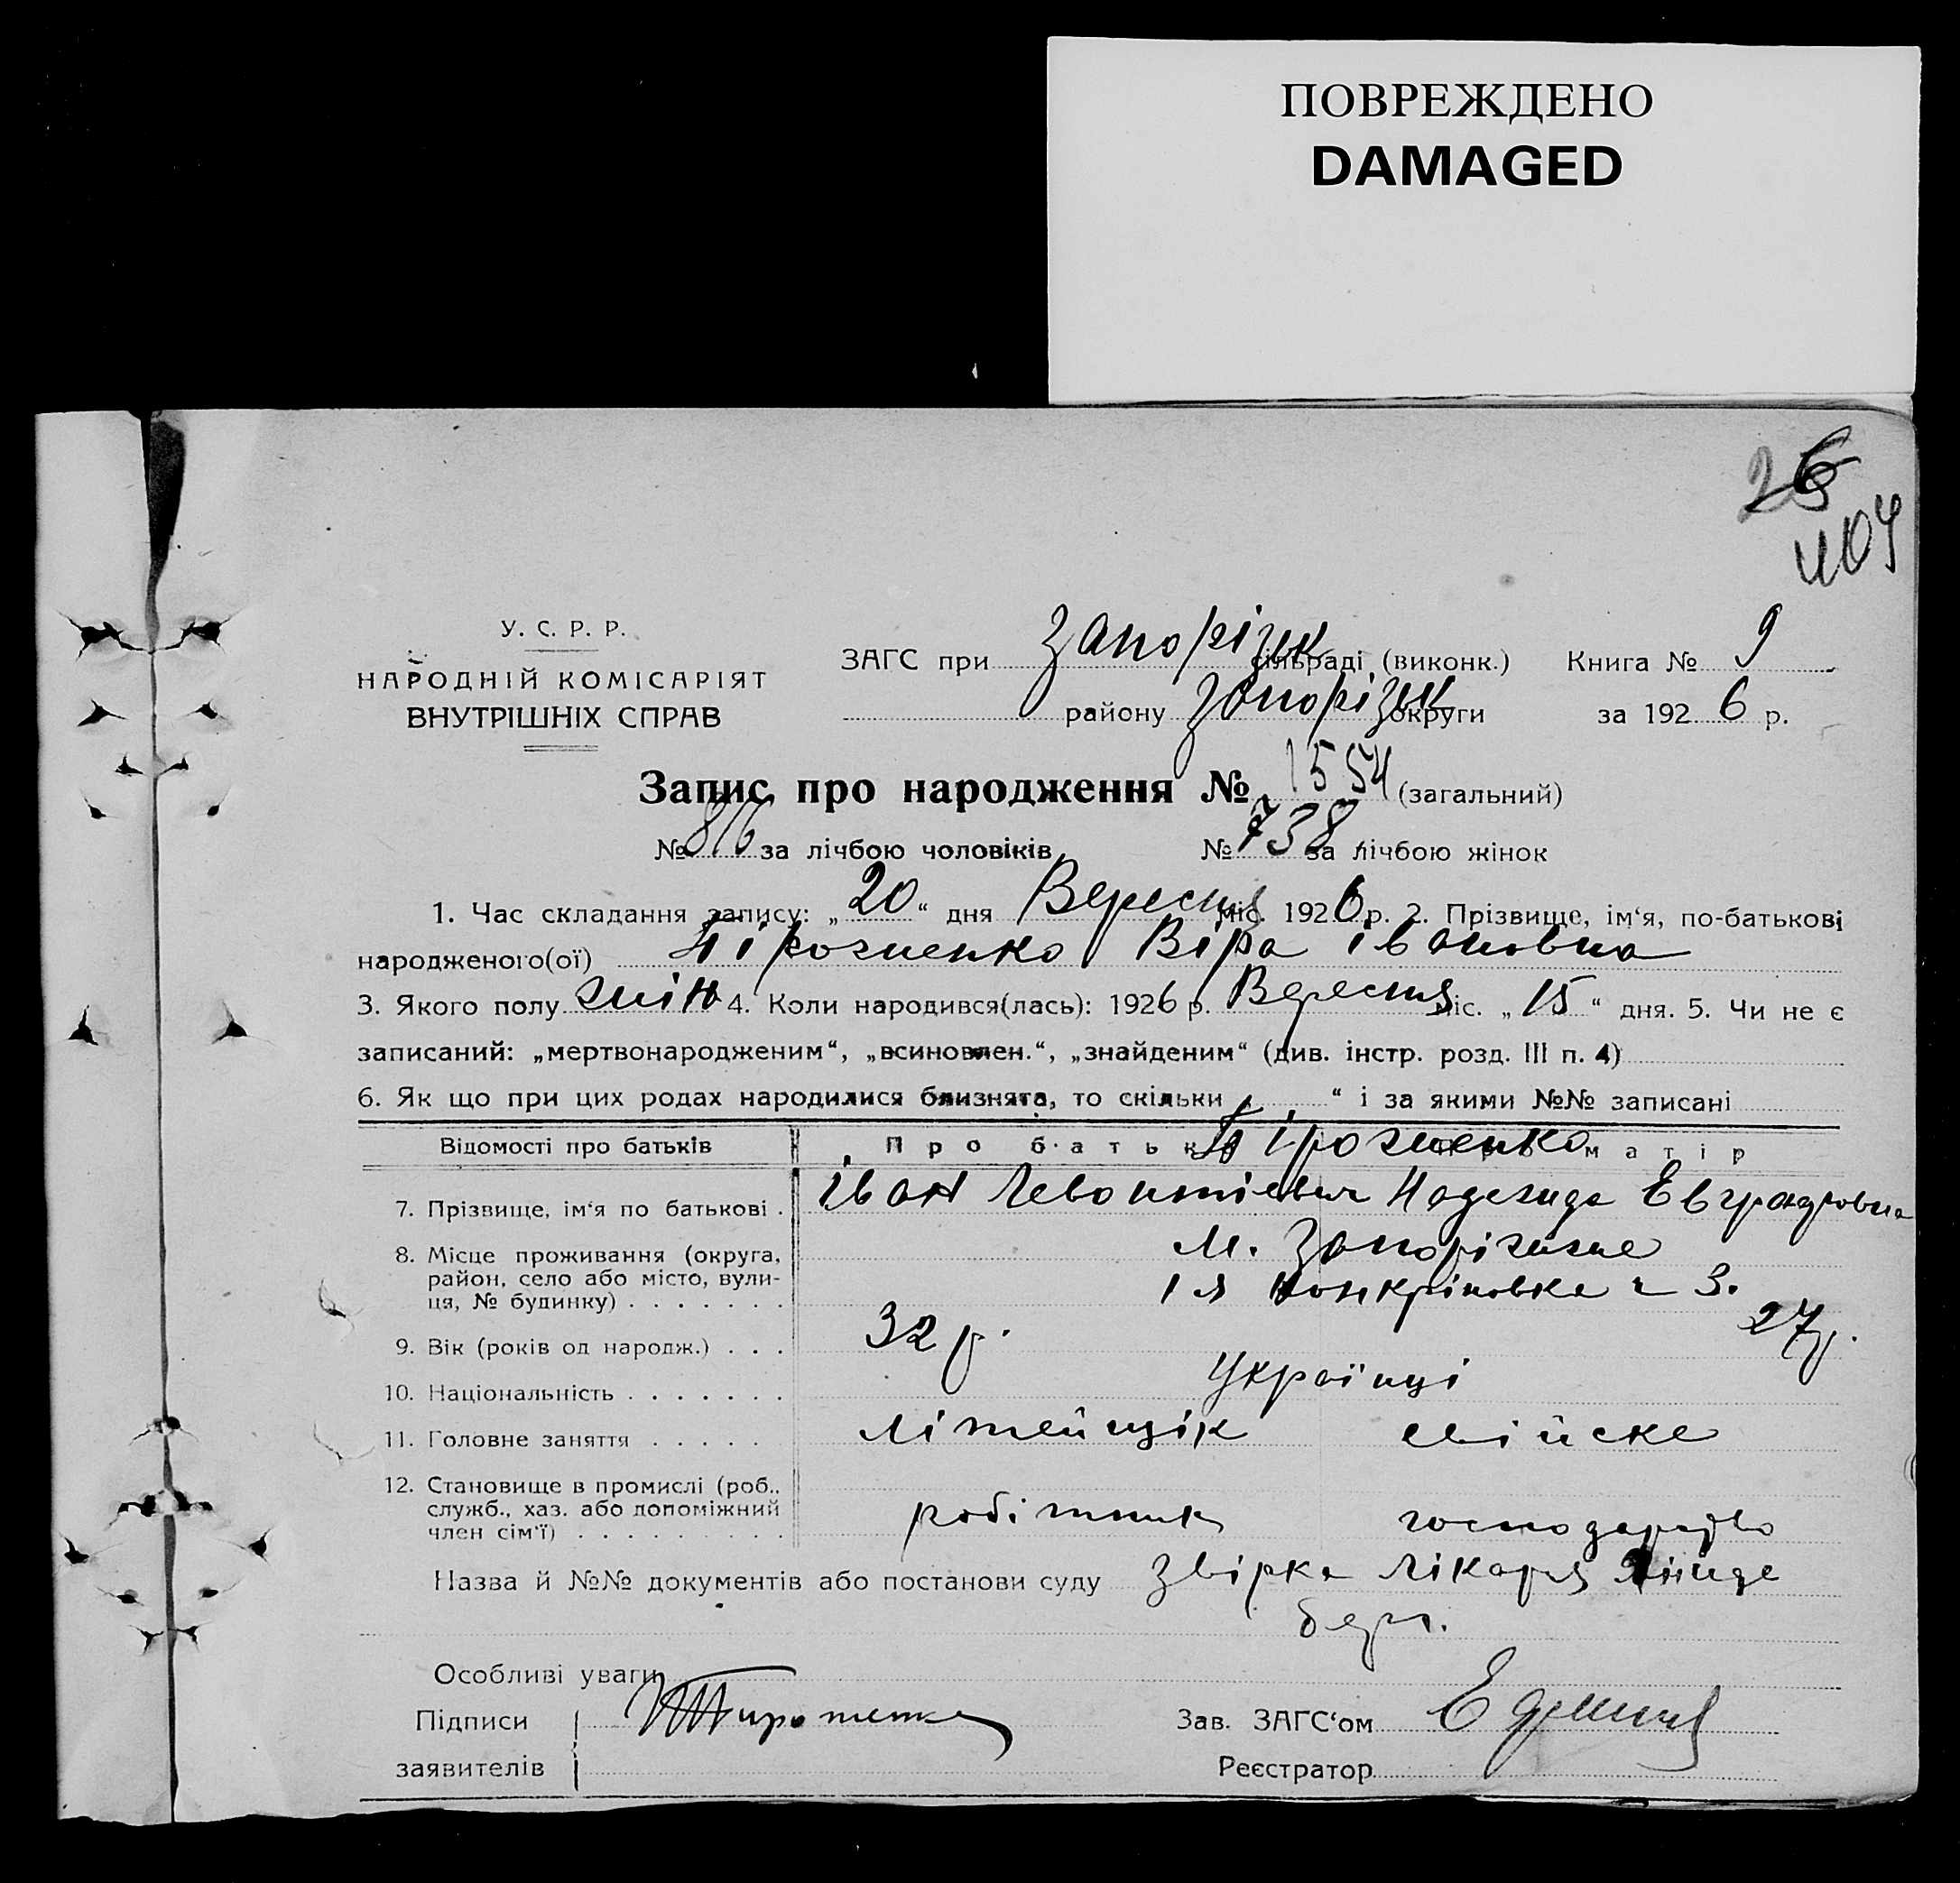 ПОВРЕЖДЕНО
DAMAGED
26
404
У. С. Р. Р.
НАРОДНІЙ КОМІСАРІЯТ
ВНУТРІШНІХ СПРАВ
ЗАГС при Запорізьк сільраді (виконк.) Книга № 9
району Запорізьк округи за 1926 р.
Запис про народження № 1554 (загальний)
№ 816 за лічбою чоловіків № 738 за лічбою жінок
1. Час складання запису: „20“ дня Вересня міс. 1926 р. 2. Прізвище, ім‘я, по-батькові
народженого(ої) Пірозненко Віра Івановна
3. Якого полу жін 4. Коли народився(лась): 1926 р. Вересня міс. „15“ дня. 5. Чи не є
записаний: „мертвонародженим“, „всиновлен.“, „знайденим“ (див. інстр. розд. III п. 4)
6. Як що при цих родах народилися близнята, то скільки „ “ і за якими №№ записані
Відомості про батьків Про батька Про матір
Пірозненко
7. Прізвище, ім‘я по батькові . Іван Левонтіевич Надежда
8. Місце проживання (округа, район, село або місто, вулиця, № будинку) . . . . . . . м. Запоріжжє
1я ч 3.
9. Вік (років од народж.) . . . 32 р. 27 р.
10. Національність . . . . . . . Українці
11. Головне заняття . . . . . Літейщік свійске
12. Становище в промислі (роб., служб., хаз. або допоміжний член сім‘ї) . . . . . . . . . робітник господарство
Назва й №№ документів або постанови суду Звірка лікаря
Особливі уваги
Підписи заявителів
Зав. ЗАГС‘ом
Реєстратор